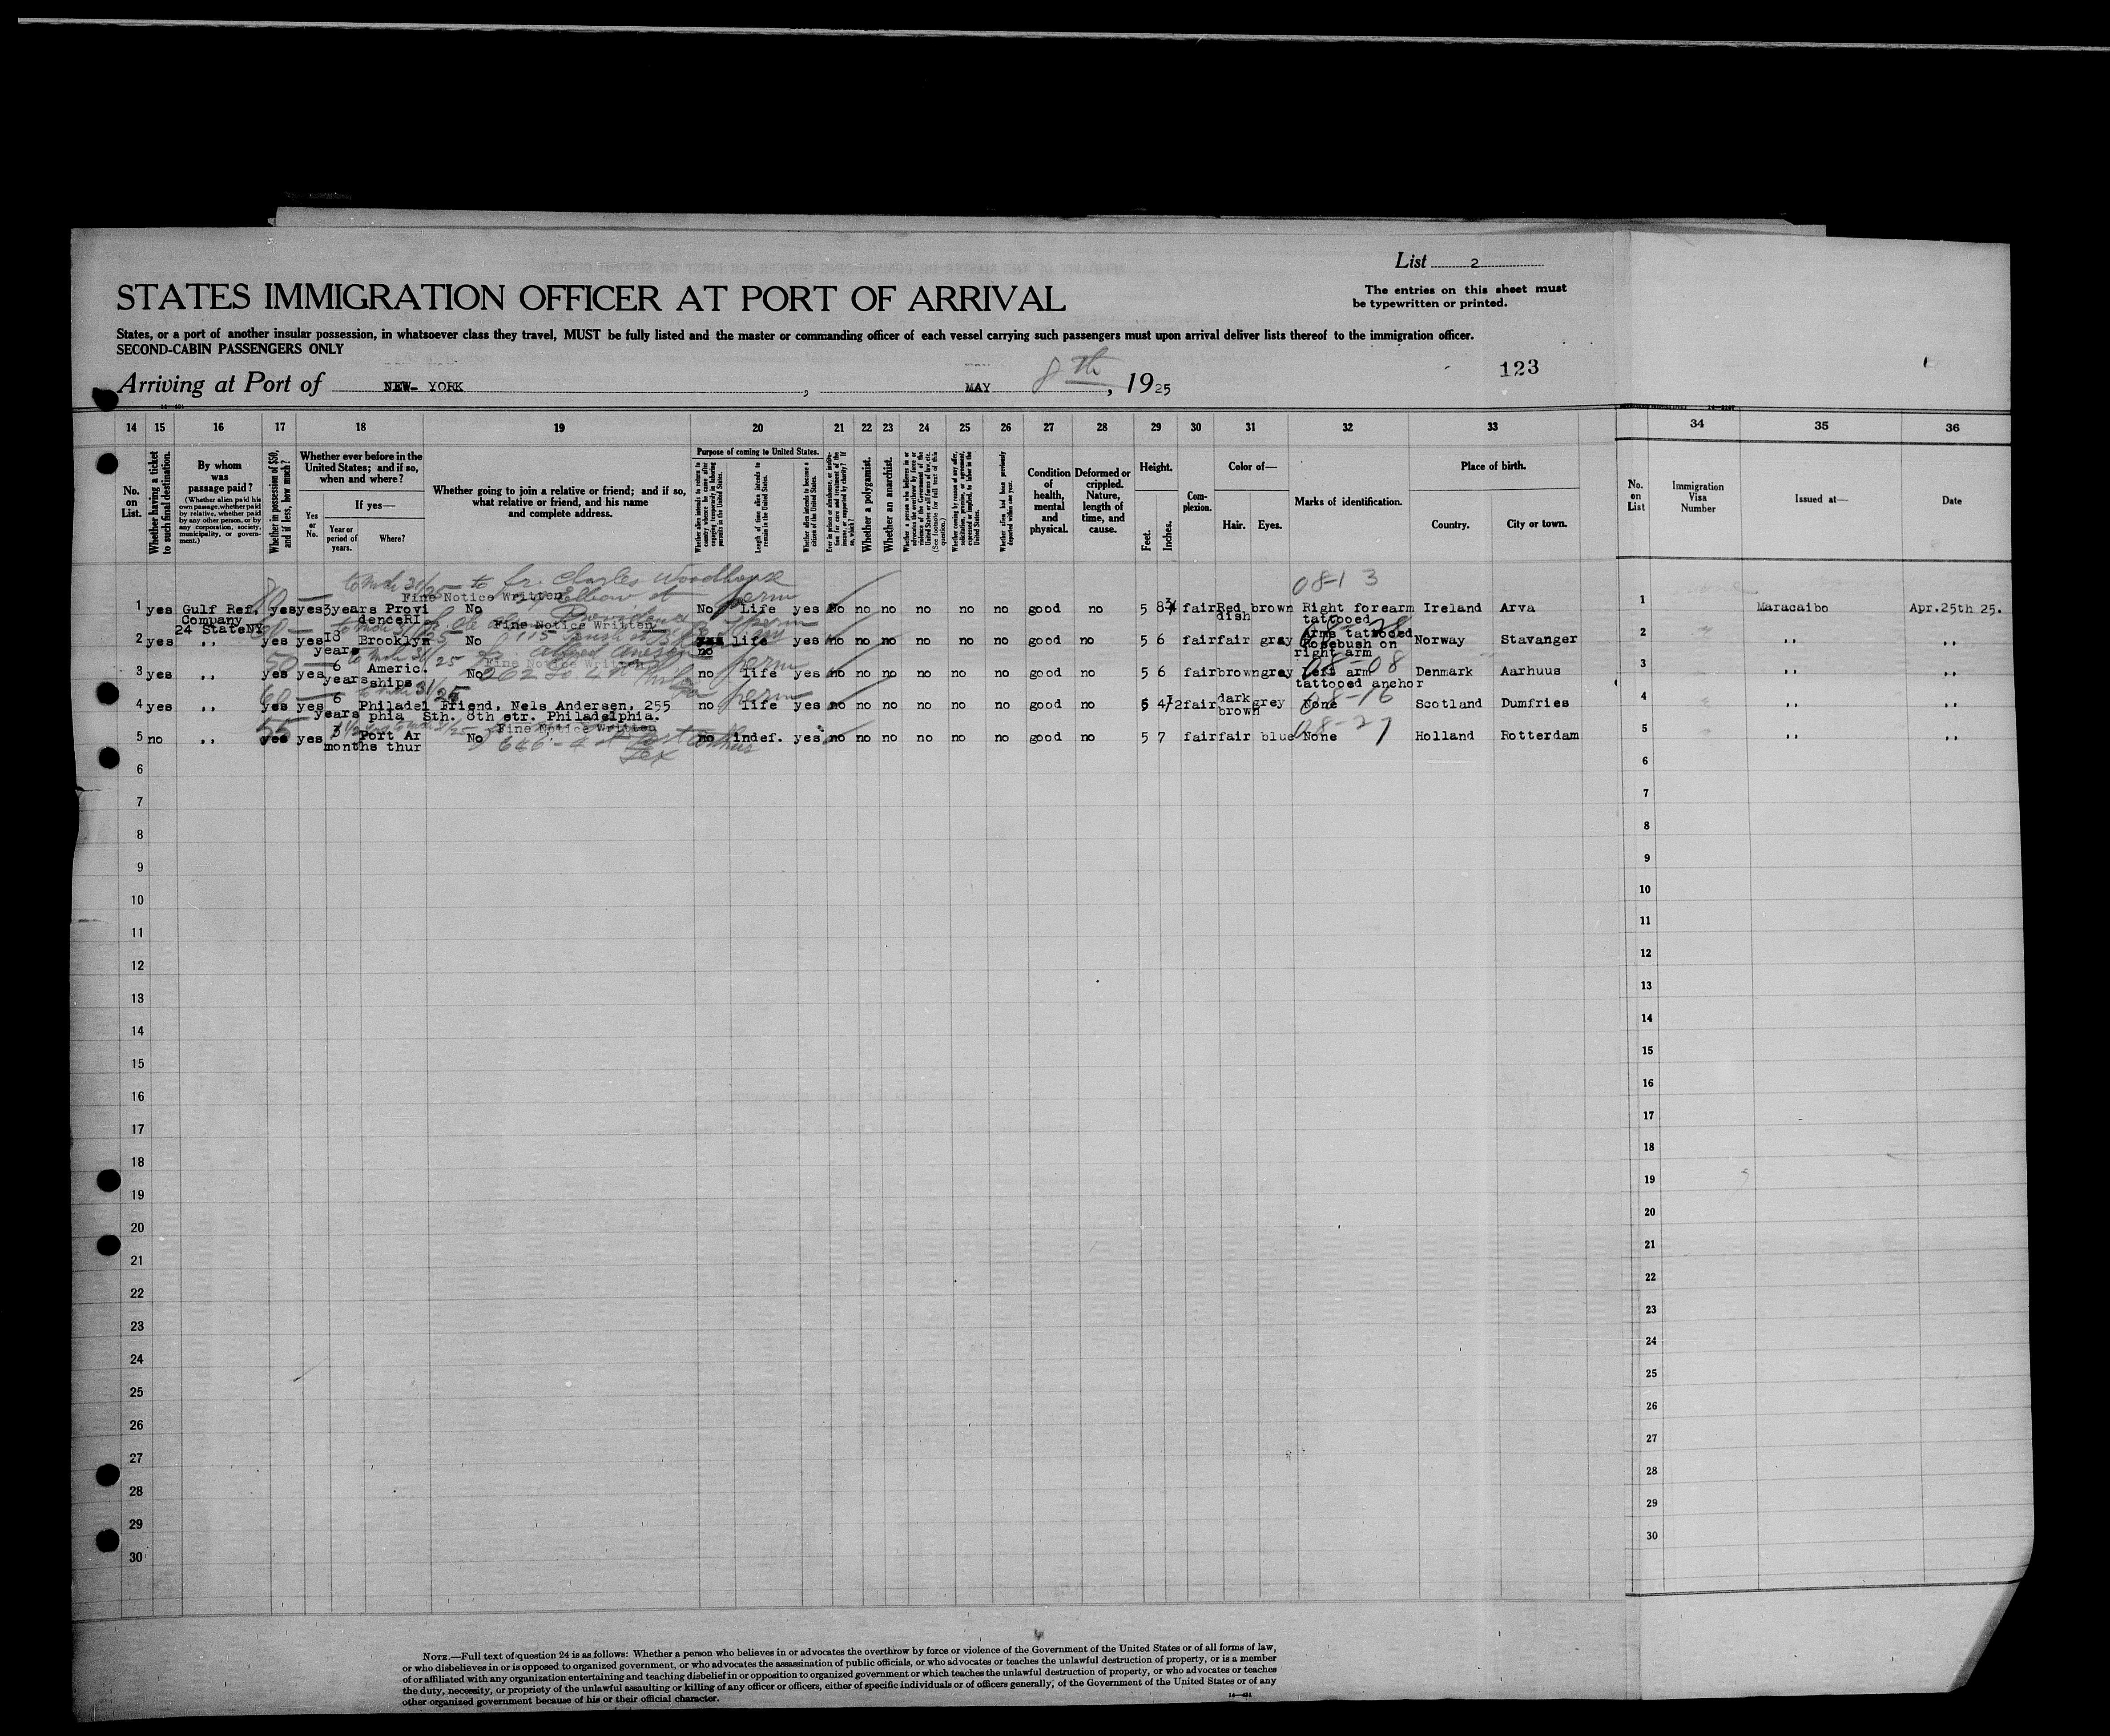 List 2
STATES IMMIGRATION OFFICER AT PORT OF ARRIVAL
The entries on this sheet must
be typewritten or printed.
States, or a port of another insular possession, in whatsoever class they travel, MUST be fully listed and the master or commanding officer of each vessel carrying such passengers must upon arrival deliver lists thereof to the immigration officer.
SECOND-CABIN PASSENGERS ONLY
Arriving at Port of NEW YORK, MAY 8th, 1925
123
14 15 16 17 18 19 20 21 22 23 24 25 26 27 28 29 30 31 32 33 34 35 36
No. on List.
Whether having a ticket to such final destination.
By whom was passage paid?
(Whether alien paid his own passage, whether paid by relative, whether paid by any other person, or by any corporation, society, municipality, or government.)
Whether in possession of $50, and if less, how much?
Whether ever before in the United States; and if so, when and where?
Yes or No.
If yes—
Year or period of years.
Where?
Whether going to join a relative or friend; and if so, what relative or friend, and his name and complete address.
Purpose of coming to United States.
Length of time alien intends to remain in the United States.
Whether alien intends to become a citizen of the United States.
Whether a polygamist.
Whether an anarchist.
Condition of health, mental and physical.
Deformed or crippled. Nature, length of time, and cause.
Height.
Feet. Inches.
Complexion.
Color of—
Hair. Eyes.
Marks of identification.
Place of birth.
Country. City or town.
No. on List
Immigration Visa Number
Issued at—
Date
80— to fr. Charles Woodhouse
Fine Notice Written Elbow st perm 08-13
1 yes Gulf Ref. yes yes 3years Provi No No Life yes No no no no no no good no 5 8¾ fair Red brown Right forearm Ireland Arva 1 Maracaibo Apr.25th 25.
Company denceRI Providence dish tattooed
24 StateNY Fine Notice Written perm Arms tattooed
2 yes ,, yes yes 13 Brooklyn No life yes no no no no no no good no 5 6 fair fair gray Rosebush on Norway Stavanger 2 ,, ,,
years no right arm
50— 6 Americ. Fine Notice Written perm 08-08
3 yes ,, yes yes years ships No no life yes no no no no no no good no 5 6 fair brown grey Left arm Denmark Aarhuus 3 ,, ,,
tattooed anchor
60— 6 perm 08-16
4 yes ,, yes yes years Philadel Friend, Nels Andersen, 255 no life yes no no no no no no good no 5 4½ fair dark brown grey None Scotland Dumfries 4 ,, ,,
phia Sth. 8th str. Philadelphia.
55 Fine Notice Written 08-27
5 no ,, yes yes 3 Port Ar No no indef. yes no no no no no no good no 5 7 fair fair blue None Holland Rotterdam 5 ,, ,,
months thur 646-4 st Port Arthur
Tex
6 6
7 7
8 8
9 9
10 10
11 11
12 12
13 13
14 14
15 15
16 16
17 17
18 18
19 19
20 20
21 21
22 22
23 23
24 24
25 25
26 26
27 27
28 28
29 29
30 30
NOTE.—Full text of question 24 is as follows: Whether a person who believes in or advocates the overthrow by force or violence of the Government of the United States or of all forms of law,
or who disbelieves in or is opposed to organized government, or who advocates the assassination of public officials, or who advocates or teaches the unlawful destruction of property, or is a member
of or affiliated with any organization entertaining and teaching disbelief in or opposition to organized government or which teaches the unlawful destruction of property, or who advocates or teaches
the duty, necessity, or propriety of the unlawful assaulting or killing of any officer or officers, either of specific individuals or of officers generally, of the Government of the United States or of any
other organized government because of his or their official character.
14—431